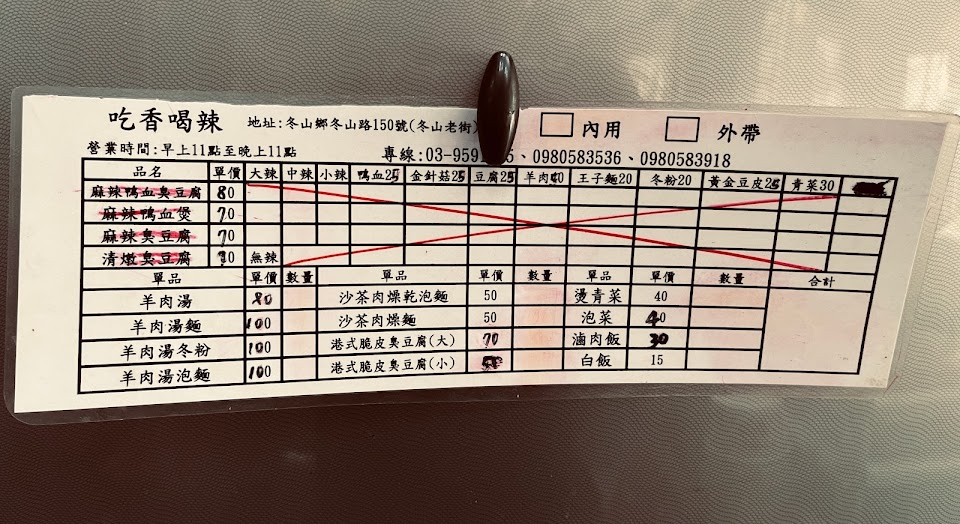 吃香喝辣 地址:冬山鄉冬山路150號(冬山老街) 內用 外帶
營業時間:早上11點至晚上11點 專線:03-9591 5、0980583536、0980583918
品名 單價 大辣 中辣 小辣 鴨血25 金針菇25 豆腐25 羊肉40 王子麵20 冬粉20 黃金豆皮25 青菜30
麻辣鴨血臭豆腐 80
麻辣鴨血煲 70
麻辣臭豆腐 70
清燉臭豆腐 無辣
單品 單價 數量 單品 單價 數量 單品 單價 數量 合計
羊肉湯 80 沙茶肉燥乾泡麵 50 燙青菜 40
羊肉湯麵 100 沙茶肉燥麵 50 泡菜 40
羊肉湯冬粉 100 港式脆皮臭豆腐(大) 70 滷肉飯 30
羊肉湯泡麵 100 港式脆皮臭豆腐(小) 白飯 15